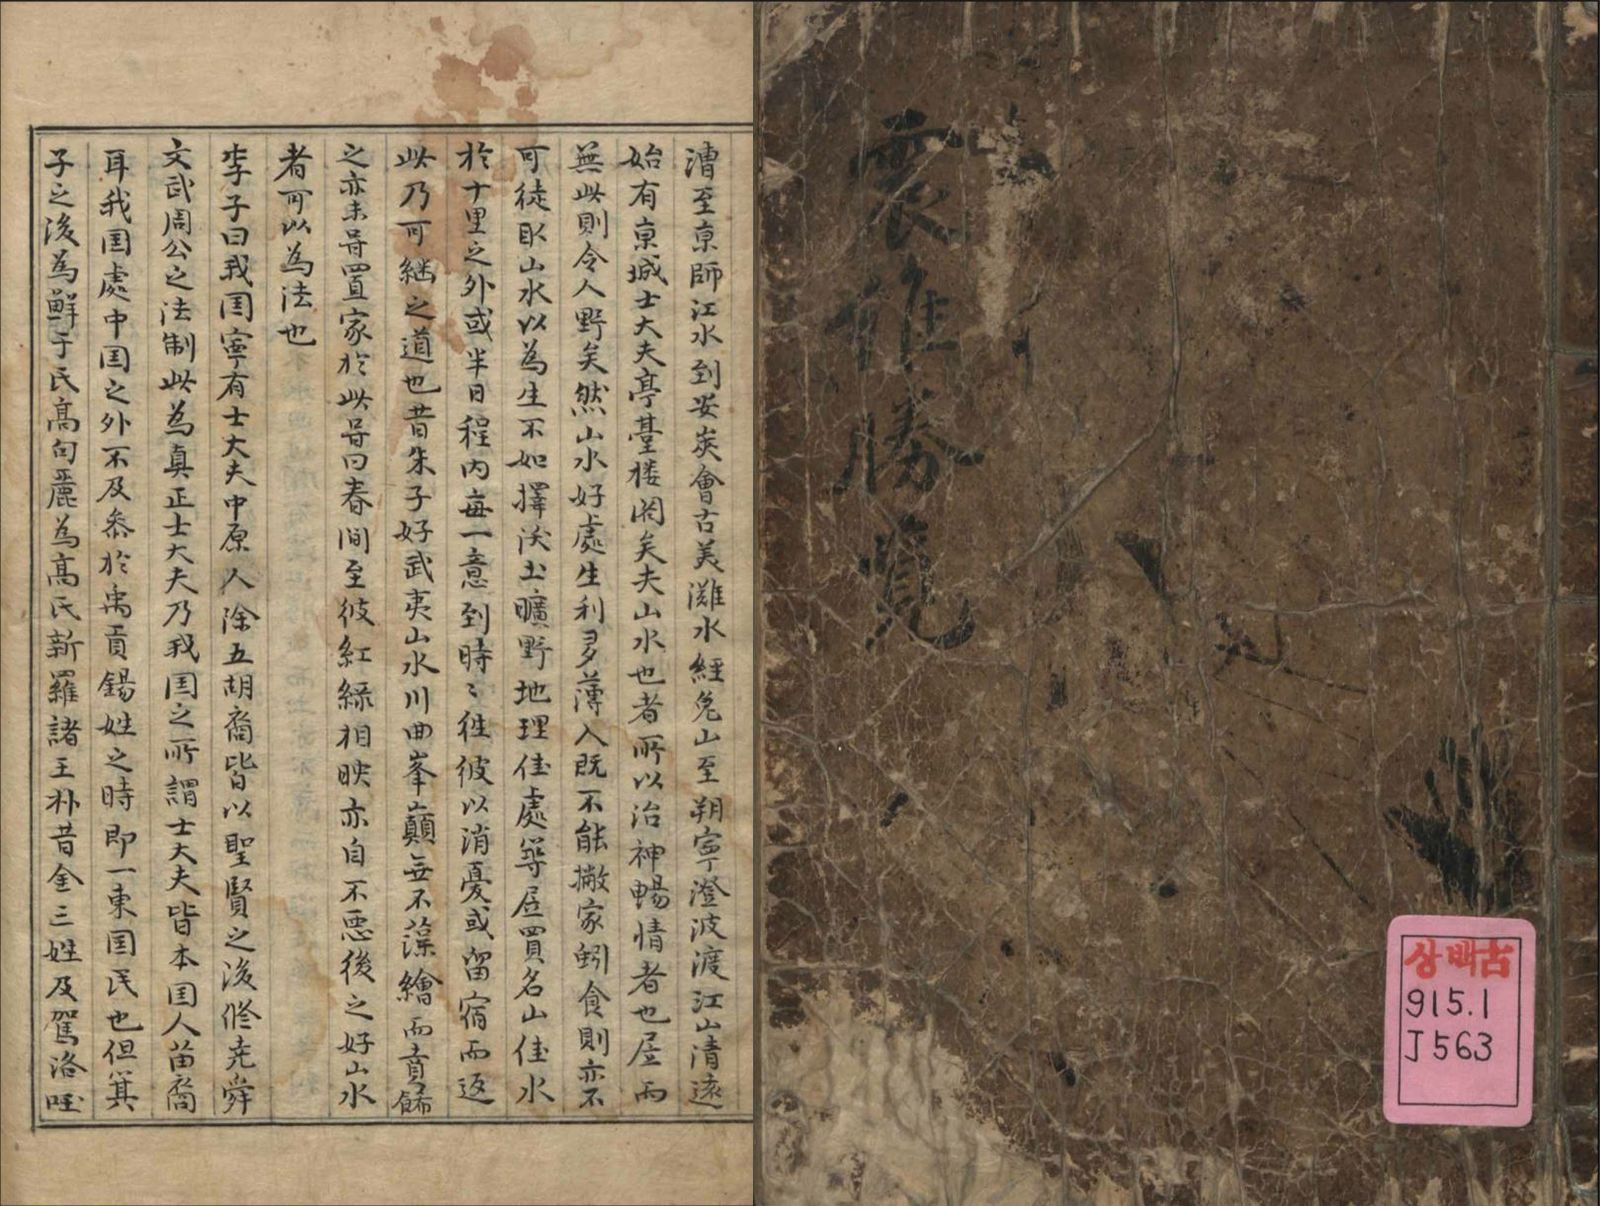 震維勝覽
상백古
915.1
J563
漕至京師江水到安炭會古美灘水経兔山至朔寧澄波渡江山清遠
始有京城士大夫亭臺楼阁矣夫山水也者所以治神暢情者也居而
無此則令人野矣然山水好處生利多薄人既不能撇家蚓食則亦不
可徒取山水以為生不如擇沃土曠野地理佳處筭居買名山佳水
於十里之外或半日程内每一意到時〻徃彼以消憂或留宿而返
此乃可継之道也昔朱子好武夷山水川曲峯巔無不藻繪而賁餙
之亦未甞置家於此甞曰春间至彼紅綠相映亦自不悪後之好山水
者可以為法也
李子曰我囯寧有士大夫中原人除五胡裔皆以聖賢之後修尭舜
文武周公之法制此為真正士大夫乃我囯之所謂士大夫皆本囯人苗裔
耳我囯處中囯之外不及叅於禹貢錫姓之時即一東囯民也但箕
子之後為鮮于氏高句麗為高氏新羅諸王朴昔金三姓及駕洛